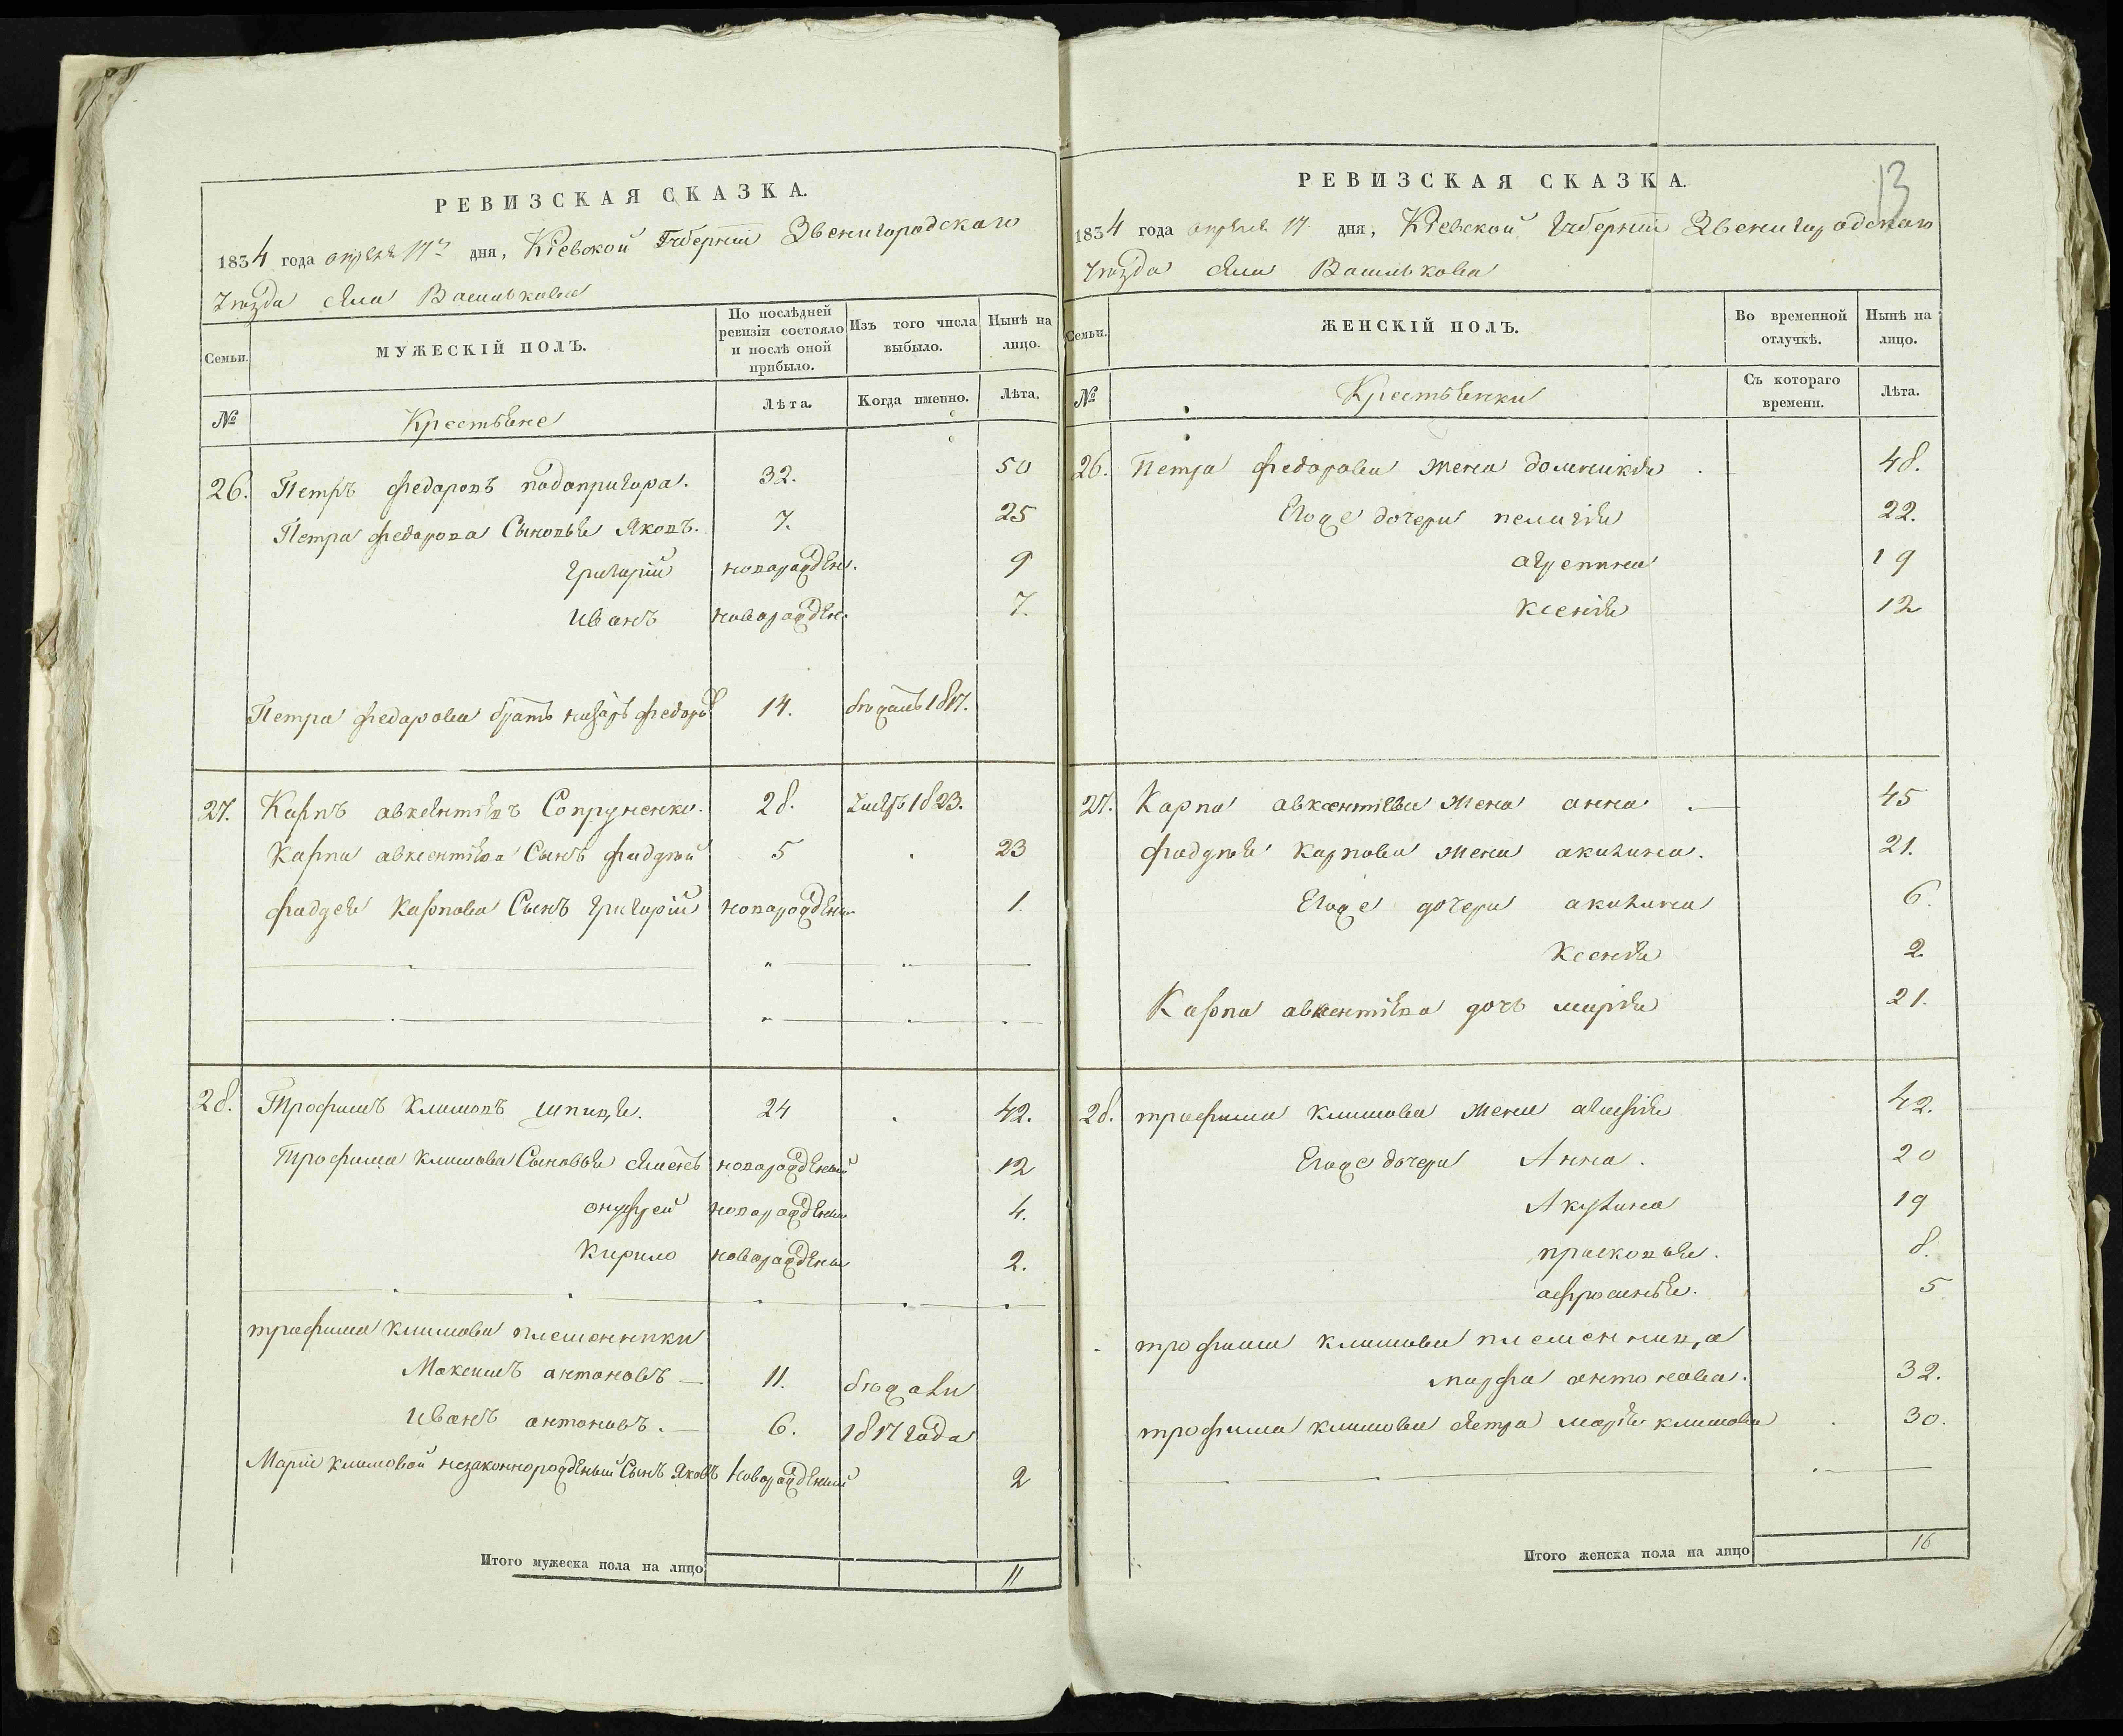 РЕВИЗСКАЯ СКАЗКА.
1834 года апреля 17го дня, Кіевской Губерніи Звенигородскаго
Уѣзда села Василькова
Семьи.
МУЖЕСКІЙ ПОЛЪ.
По послѣдней ревизіи состояло и послѣ оной прибыло.
Изъ того числа выбыло.
Нынѣ на лицо.
№ Крестьяне Лѣта. Когда именно. Лѣта.
26. Петръ Федоровъ подопригора. 32. 50
Петра Федорова Сыновья Яковъ. 7. 25
григорій новорожден. 9
иванъ новорожден. 7.
Петра Федорова братъ назаръ федоров 14. бежалъ 1817.
27. Карпъ авксентіевъ Сопруненко. 28. Умеръ 1823.
Карпа авксентіева Сынъ фадѣй 5 23
фадея Карпова Сынъ григорій новорожден 1.
28. Трофимъ Климовъ шпица. 24 42.
Трофима Климова Сыновья семенъ новорожденый 12
онуфрей новорожден 4.
Кирило новорожден 2.
трофима климова племенники
Максимъ антоновъ — 11. бежали
иванъ антоновъ. — 6. 1817 года
Маріи климовой незаконнорожденый Сынъ Яковъ новорожденый 2
Итого мужеска пола на лицо 11
13
РЕВИЗСКАЯ СКАЗКА.
1834 года апреля 17 дня, Кіевской Губерніи Звенигородскаго
Уѣзда села Василькова
Семьи.
ЖЕНСКІЙ ПОЛЪ.
Во временной отлучкѣ.
Нынѣ на лицо.
№ Крестьянки Съ котораго времени. Лѣта.
26. Петра федорова жена домникія 48.
Егоже дочери пелагія 22.
агрепина 19
ксенія 12
27. Карпа авксентіева жена анна 45
фадѣя карпова жена акилина. 21.
Егоже дочери акилина 6.
Ксенія 2
Карпа авксентіева дочь марія 21.
28. трофима климова жена 42.
Егоже дочери Анна. 20
Акулина 19
прасковья. 8.
афросинья. 5
трофима климова племенница
марфа антонова. 32.
трофима климова сестра марія климова 30.
Итого женска пола на лицо 16